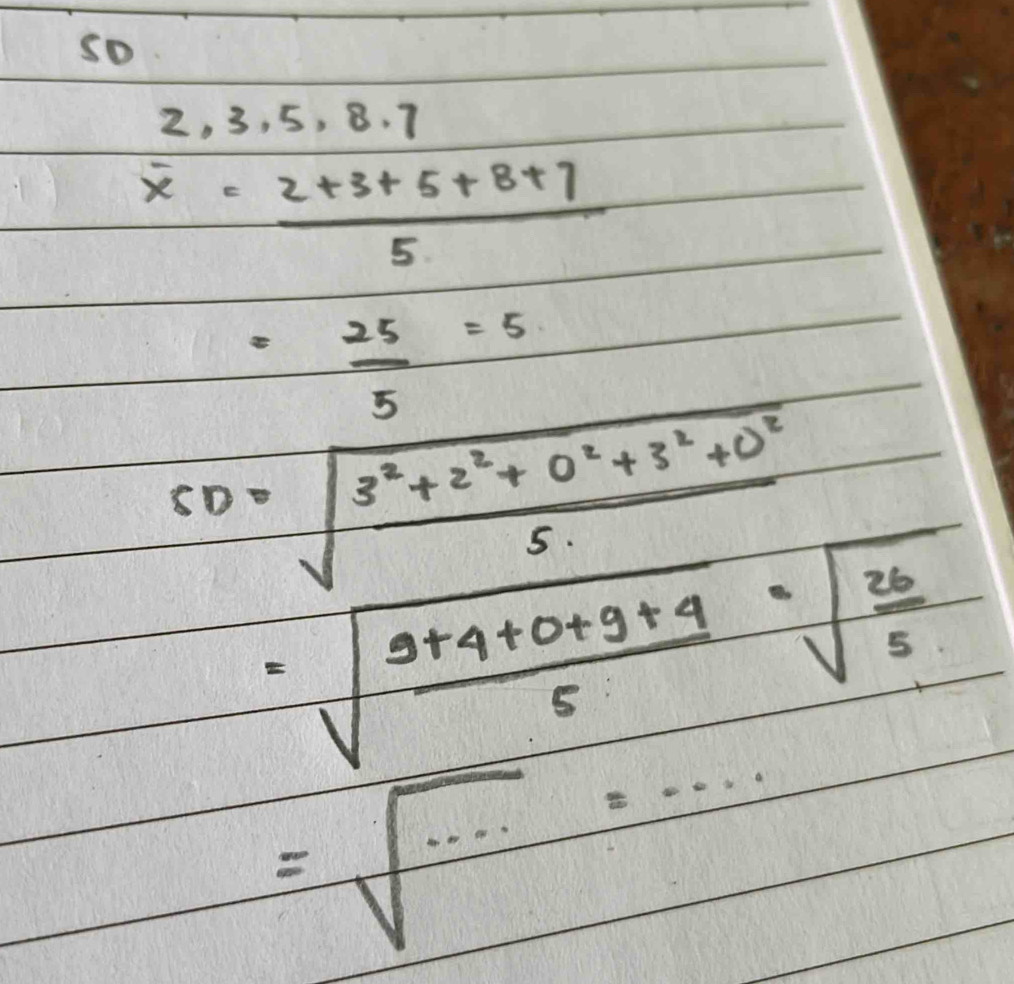 SD.
2,3,5,8.7
x̄ = 2+3+5+8+7 / 5.
= 25/5 = 5.
SD = √(3²+2²+0²+3²+0² / 5.)
= √(9+4+0+9+4 / 5) = √(26/5.)
= √.... = ....